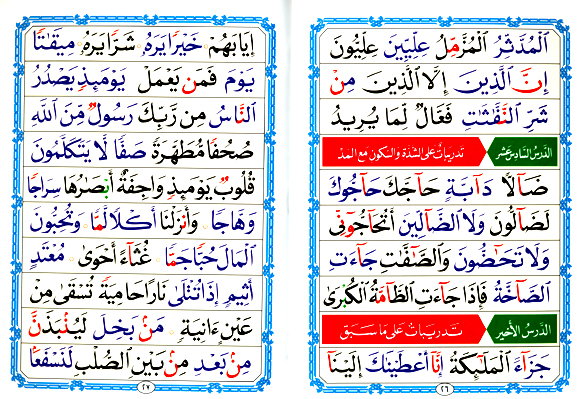 ٱلْمُدَّثِّرُ ٱلْمُزَّمِّلُ عِلِّيِّينَ عِلِّيُّونَ
إِنَّ ٱلَّذِينَ إِلَّا ٱلَّذِينَ مِنْ
شَرِّ ٱلنَّفَّٰثَٰتِ فَعَّالٌ لِّمَا يُرِيدُ
الدَّرْسُ السَّادِسُ عَشَرَ تدريبات على الشدة والسكون مع المد
ضَآلًّا دَآبَّةٍ حَآجَّكَ حَآجُّوكَ
لَضَآلُّونَ وَلَا ٱلضَّآلِّينَ أَتُحَٰٓجُّوٓنِّى
وَلَا تَحَٰٓضُّونَ وَٱلصَّٰٓفَّٰتِ جَآءَتِ
ٱلصَّآخَّةُ فَإِذَا جَآءَتِ ٱلطَّآمَّةُ ٱلْكُبْرَىٰ
الدَّرْسُ الأَخِير تَدرِيبَات عَلى مَا سَبَق
جَزَآءً ٱلْمَلَٰٓئِكَةُ إِنَّآ أَعْطَيْنَٰكَ إِلَيْنَآ
٢٦
إِيَابَهُمْ خَيْرًا يَرَهُ شَرًّا يَرَهُ مِيقَٰتًا
يَوْمَ فَمَن يَعْمَلْ يَوْمَئِذٍ يَصْدُرُ
ٱلنَّاسُ مِن رَّبِّكَ رَسُولٌ مِّنَ ٱللَّهِ
صُحُفًا مُّطَهَّرَةً صَفًّا لَّا يَتَكَلَّمُونَ
قُلُوبٌ يَوْمَئِذٍ وَاجِفَةٌ أَبْصَٰرُهَا سِرَاجًا
وَهَّاجًا وَأَنزَلْنَا أَكْلًا لَّمًّا وَتُحِبُّونَ
ٱلْمَالَ حُبًّا جَمًّا غُثَآءً أَحْوَىٰ مُعْتَدٍ
أَثِيمٍ إِذَا تُتْلَىٰ نَارًا حَامِيَةً تُسْقَىٰ مِنْ
عَيْنٍ ءَانِيَةٍ مَنۢ بَخِلَ لَيُنۢبَذَنَّ
مِنۢ بَعْدِ مِنۢ بَيْنِ ٱلصُّلْبِ لَنَسْفَعًۢا
٢٧